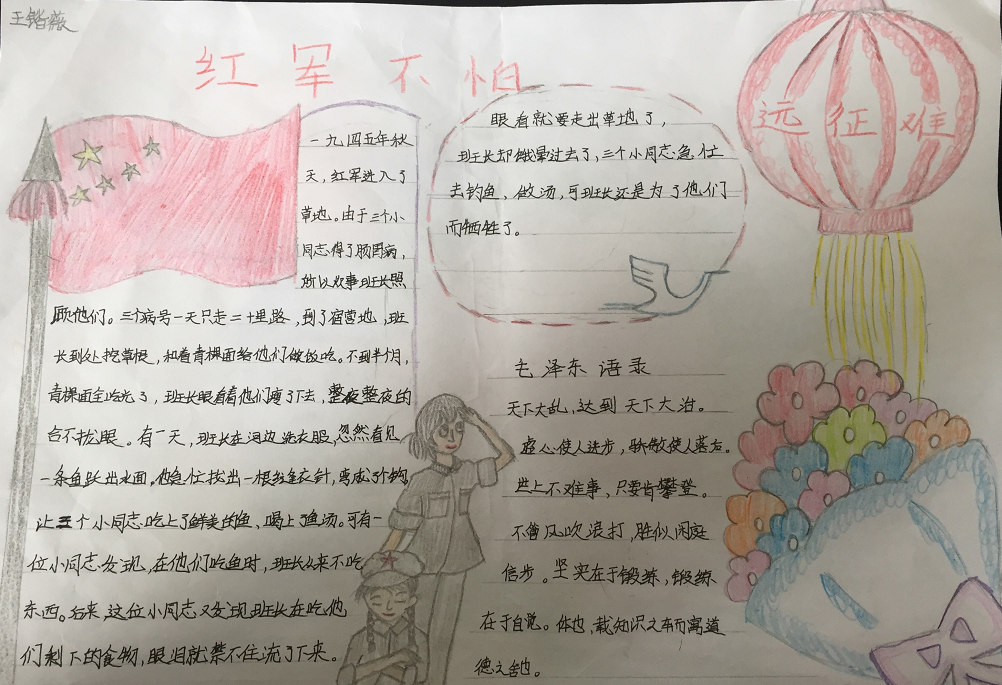 王锴薇
红军不怕
远征难
一九四五年秋
天，红军进入了
草地。由于三个小
同志得了肠胃病，
所以炊事班长照
顾他们。三个病号一天只走二十里路，到了宿营地，班
长到处挖草根，和着青稞面给他们做饭吃。不到半个月，
青稞面全吃光了，班长眼看着他们瘦了下去，整夜整夜的
合不拢眼。有一天，班长在河边洗衣服，忽然看见
一条鱼跃出水面。他急忙找出一根缝衣针，弯成了个钩，
让三个小同志吃上了鲜美的鱼，喝上了鱼汤。可有一
位小同志发现，在他们吃鱼时，班长从来不吃
东西。后来，这位小同志又发现班长在吃他
们剩下的食物，眼泪就禁不住流了下来。
眼看就要走出草地了，
班长却饿晕过去了，三个小同志急忙
去钓鱼，做汤，可班长还是为了他们
而牺牲了。
毛泽东语录
天下大乱，达到天下大治。
虚心使人进步，骄傲使人落后。
世上不难事，只要肯攀登。
不管风吹浪打，胜似闲庭
信步。坚实在于锻练，锻练
在于自觉。体也，载知识之车而寓道
德之舍也。